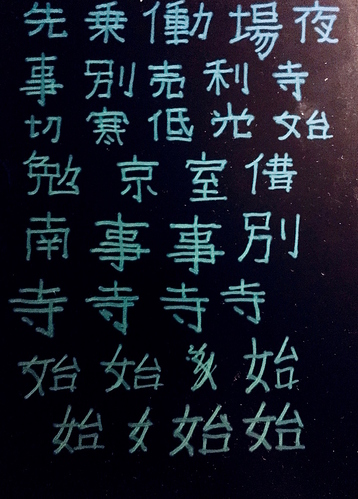 先乗働場夜
事別売利寺
切寒低光始
勉京室借
南事事別
寺寺寺寺
始始始
始始始